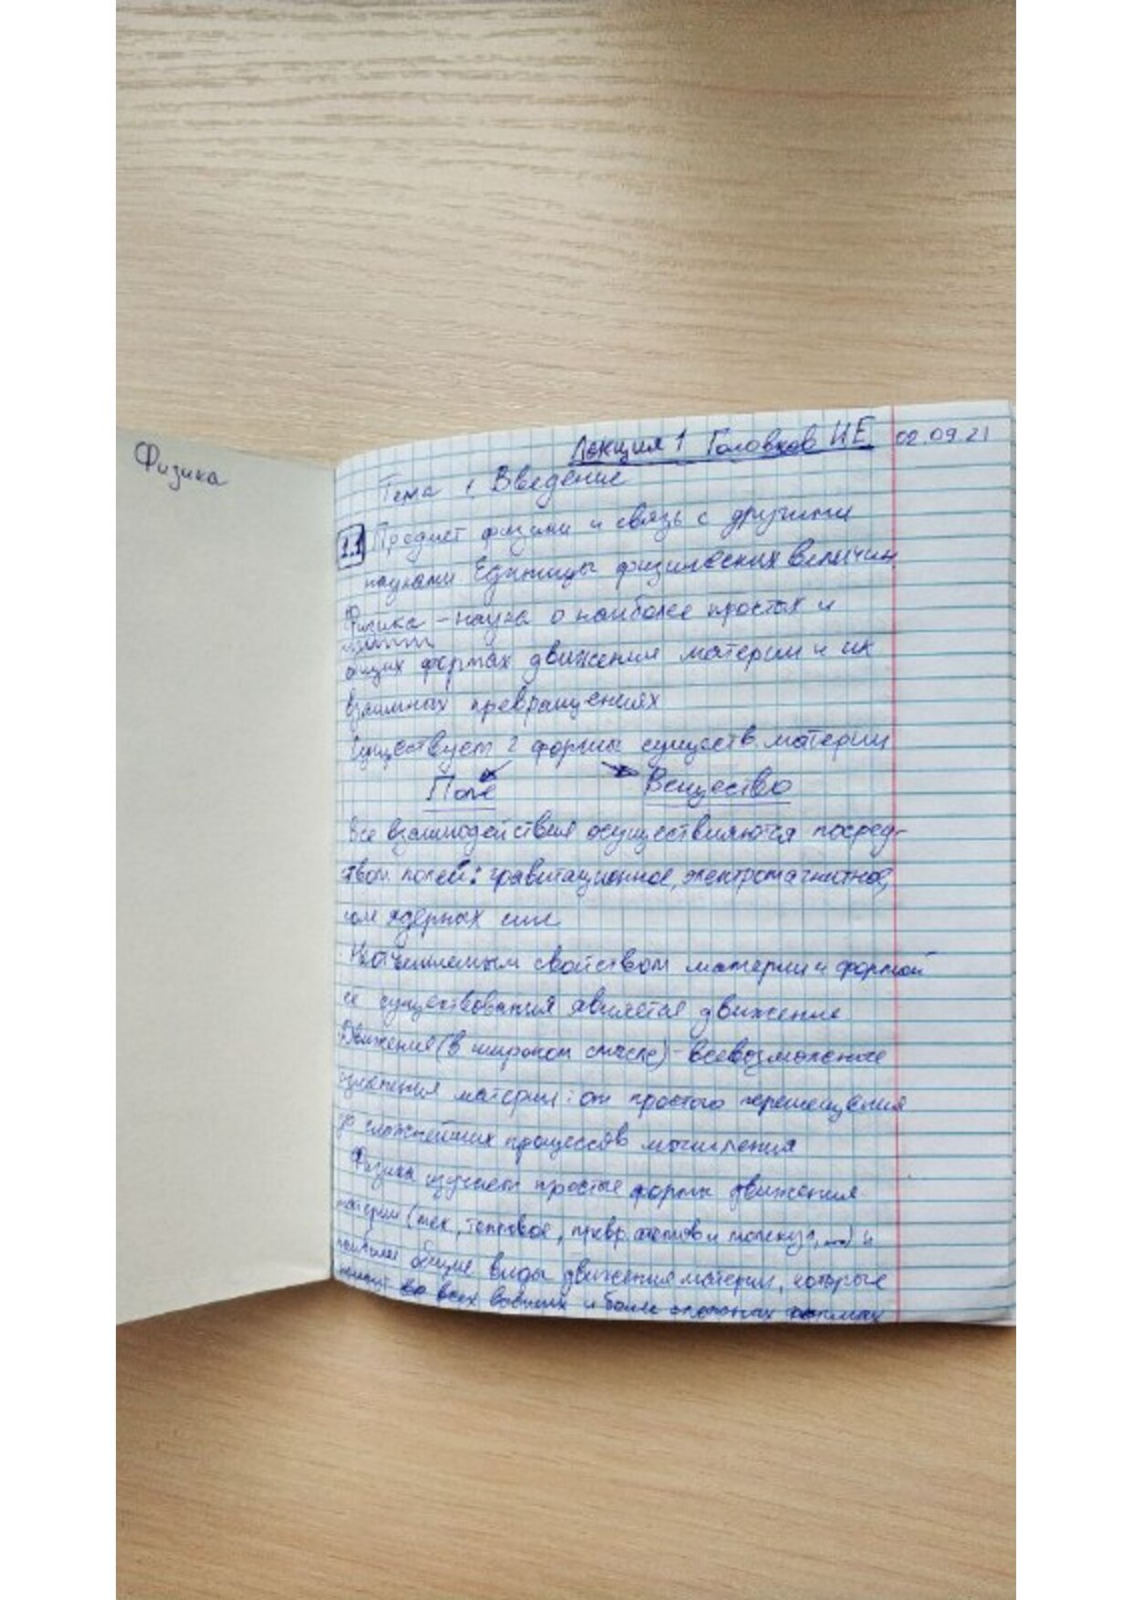 Физика
Лекция 1 Головков И Е 02.09.21
Тема 1 Введение
1.1 Предмет физики и связь с другими
науками Единицы физических величин
Физика - наука о наиболее простых и
общих формах движения материи и их
взаимных превращениях
Существует 2 формы существ. материи
Поле Вещество
Все взаимодействия осуществляются посред-
ством полей: гравитационное, электромагнитное,
поле ядерных сил
Неотъемлемым свойством материи и формой
её существования является движение
Движение (в широком смысле) - всевозможные
изменения материи: от простого перемещения
до сложнейших процессов мышления
Физика изучает простые формы движения
материи (мех, тепловое, превр. атомов и молекул, ...) и
наиболее общие виды движения материи, которые
во всех и более сложных формах